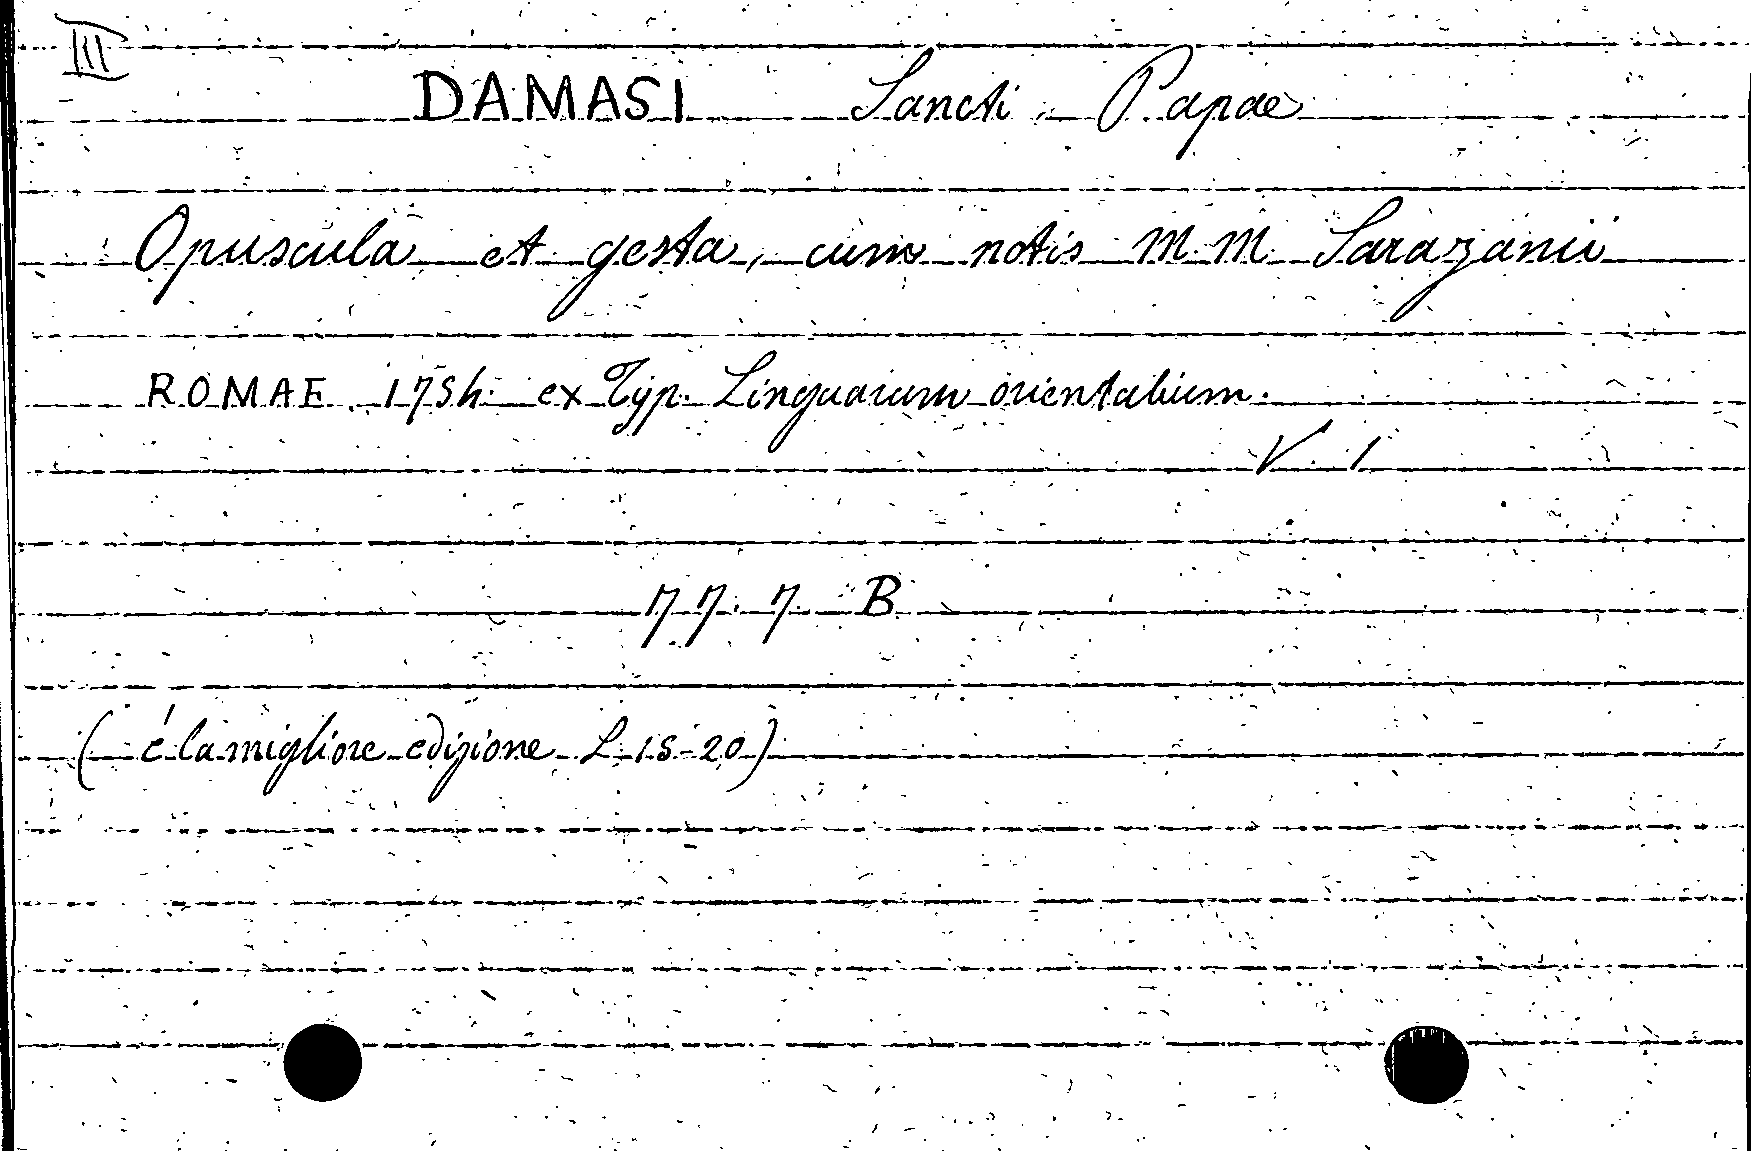 III
DAMASI Sancti Papae
Opuscula et gesta, cum notis M. M. Sarazanii
ROMAE. 1754 ex Typ. Linguarum orientalium.
V. 1
77. 7. B
( é la migliore edizione L. 15-20 )